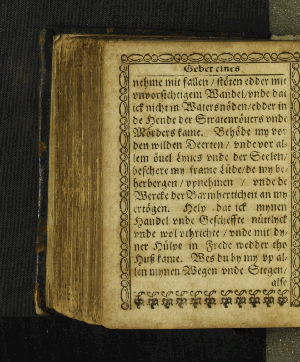 Gebet eines
nehme mit fallen / stöten edder mit
vnvorsichtigem Wandel / vnde dat
ick nicht in Watersnöden / edder in
de Hende der Stratenröuers vnde
Mörders kame. Behöde my vor
den wilden Deerten / vnde vor al-
lem öuel Lyues vnde der Seelen /
beschere my frame Lüde / de my be-
herbergen / vpnehmen / vnde de
Wercke der Barmherticheit an my
ertögen. Help dat ick mynen
Handel vnde Gescheffte nütlyck
vnde wol vthrichte / vnde mit dy-
ner Hülpe in Frede wedder tho
Huß kame. Wes du by my vp al-
len mynen Wegen vnde Stegen /
alse